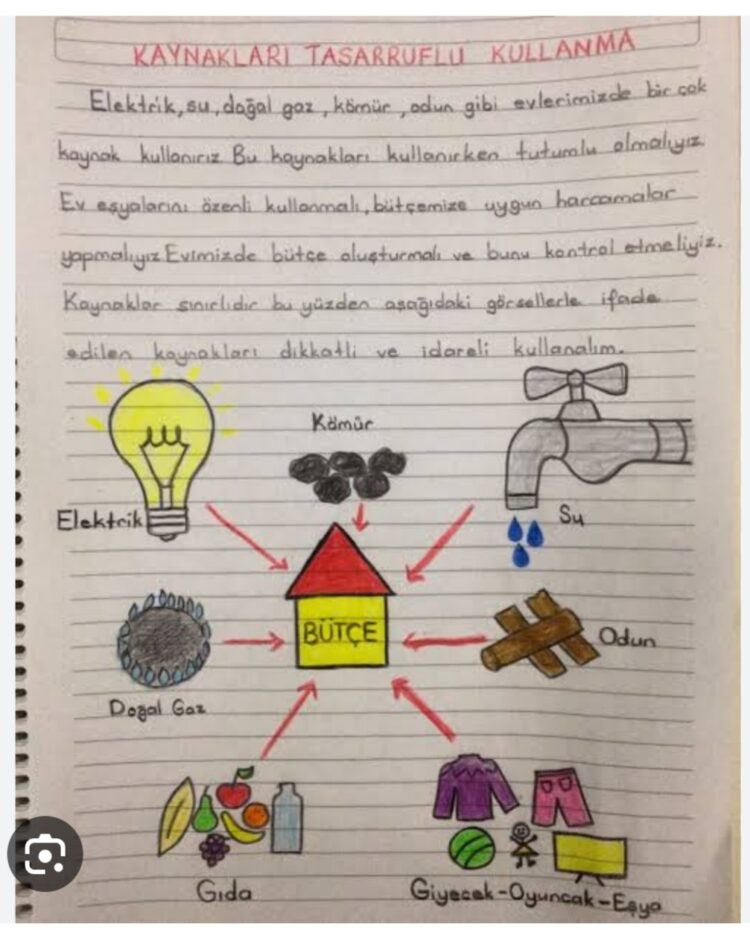 KAYNAKLARI TASARRUFLU KULLANMA
Elektrik, su, doğal gaz, kömür, odun gibi evlerimizde bir çok
kaynak kullanırız. Bu kaynakları kullanırken tutumlu olmalıyız.
Ev eşyalarını özenli kullanmalı, bütçemize uygun harcamalar
yapmalıyız. Evimizde bütçe oluşturmalı ve bunu kontrol etmeliyiz.
Kaynaklar sınırlıdır bu yüzden aşağıdaki görsellerle ifade
edilen kaynakları dikkatli ve idareli kullanalım.
Kömür
Elektrik
Su
BÜTÇE
Odun
Doğal Gaz
Gıda
Giyecek-Oyuncak-Eşya